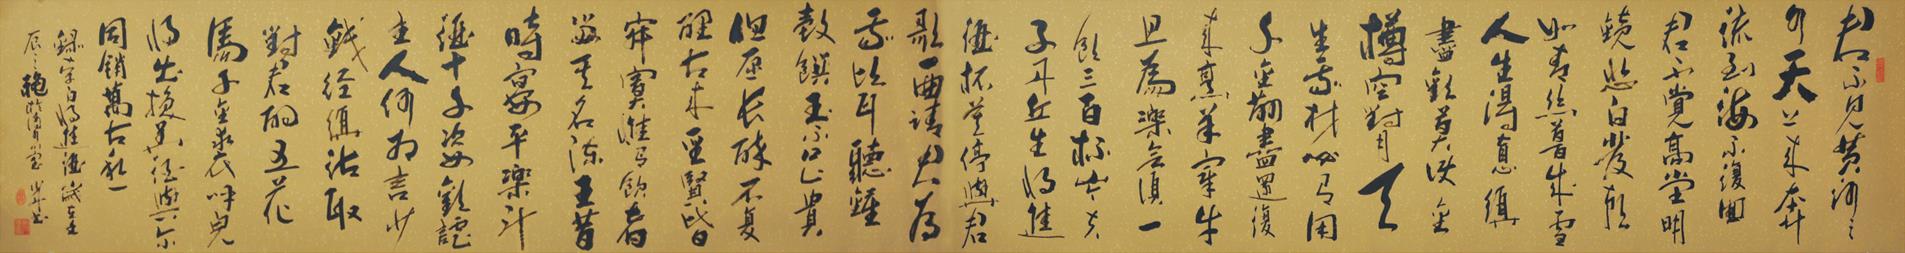 君不見黄河之
水天上来奔
流到海不復回
君不覺高堂明
鏡悲白髮朝
如青絲暮成雪
人生得意須
盡歡莫使金
樽空對月天
生我材必有用
千金散盡還復
来烹羊宰牛
且為樂會須一
飲三百杯岑夫
子丹丘生將進
酒杯莫停與君
歌一曲請君為
我傾耳聽鐘
鼓饌玉不足貴
但愿长醉不复
醒古来聖賢皆
寂寞惟有飲者
留其名陳王昔
時宴平樂斗
酒十千恣歡謔
主人何為言少
錢徑須沽取
對君酌五花
馬千金裘呼兒
將出換美酒與尔
同銷萬古愁
錄李白將進酒歲在
辰之秋